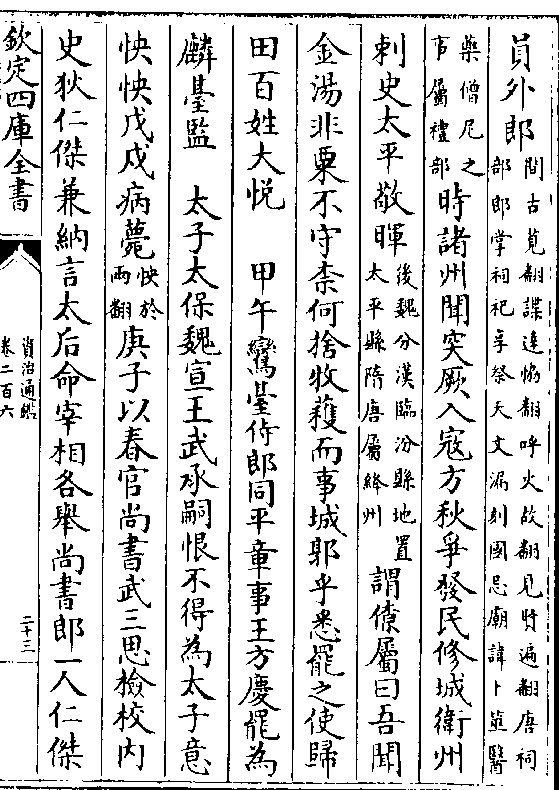 員外郎
間古莧翻諜達協翻呼火故翻見賢遍翻唐祠
部郎掌祠祀享祭天文漏刻國忌廟諱卜筮醫
藥僧尼之
事屬禮部
時諸州聞突厥入寇方秋爭發民修城衛州
刺史太平敬暉
後魏分漢臨汾縣地置
太平縣隋唐屬絳州
謂僚屬曰吾聞
金湯非粟不守柰何捨收穫而事城郭乎悉罷之使歸
田百姓大悅　甲午鸞臺侍郎同平章事王方慶罷為
麟臺監　太子太保魏宣王武承嗣恨不得為太子意
怏怏戊戌病薨
怏於
兩翻
庚子以春官尚書武三思檢校内
史狄仁傑兼納言太后命宰相各舉尚書郎一人仁傑
欽定四庫全書
資治通鑑
卷二百六
二十三